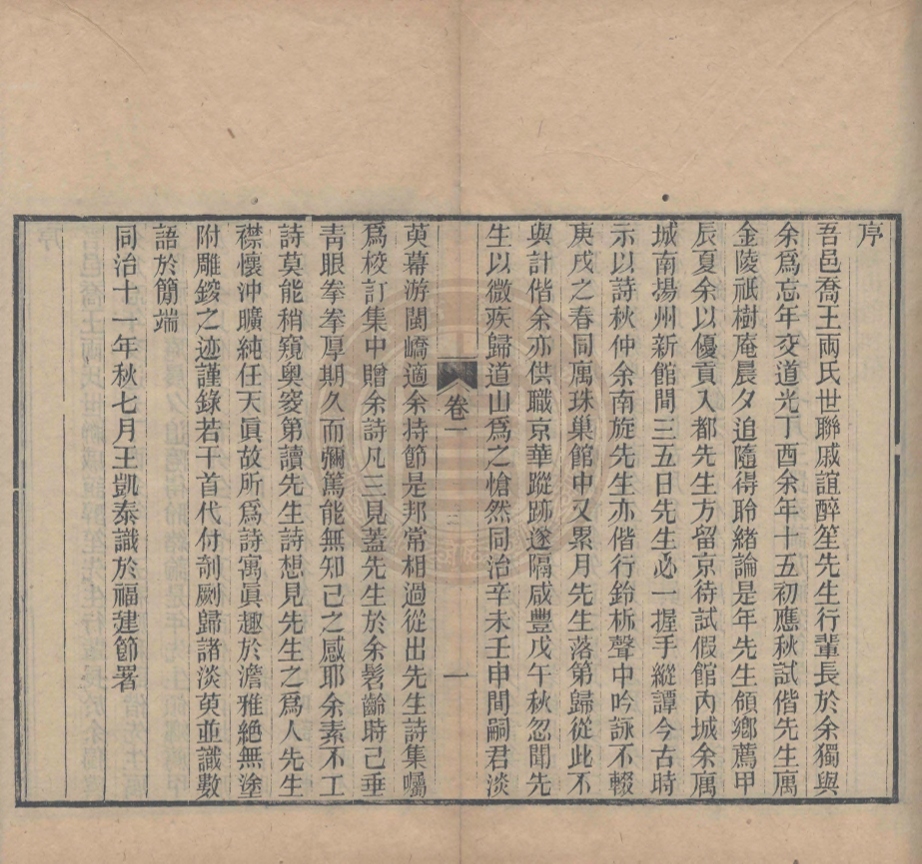 序
吾邑喬王兩氏世聯戚誼醉笙先生行輩長於余獨與
余爲忘年交道光丁酉余年十五初應秋試偕先生寓
金陵祇樹庵晨夕追隨得聆緒論是年先生領鄉薦甲
辰夏余以優貢入都先生方留京待試假館內城余寓
城南揚州新館間三五日先生必一握手縱譚今古時
示以詩秋仲余南旋先生亦偕行鈴柝聲中吟詠不輟
庚戌之春同寓珠巢館中又累月先生落第歸從此不
與計偕余亦供職京華蹤跡遂隔咸豐戊午秋忽聞先
生以微疾歸道山爲之愴然同治辛未壬申間嗣君淡
卷一
一
萸幕游閩嶠適余持節是邦常相過從出先生詩集囑
爲校訂集中贈余詩凡三見蓋先生於余髫齡時已垂
靑眼拳拳厚期久而彌篤能無知己之感耶余素不工
詩莫能稍窺奧窔第讀先生詩想見先生之爲人先生
襟懷沖曠純任天眞故所爲詩寓眞趣於澹雅絶無塗
附雕鎪之迹謹錄若干首代付剞劂歸諸淡萸並識數
語於簡端
同治十一年秋七月王凱泰識於福建節署